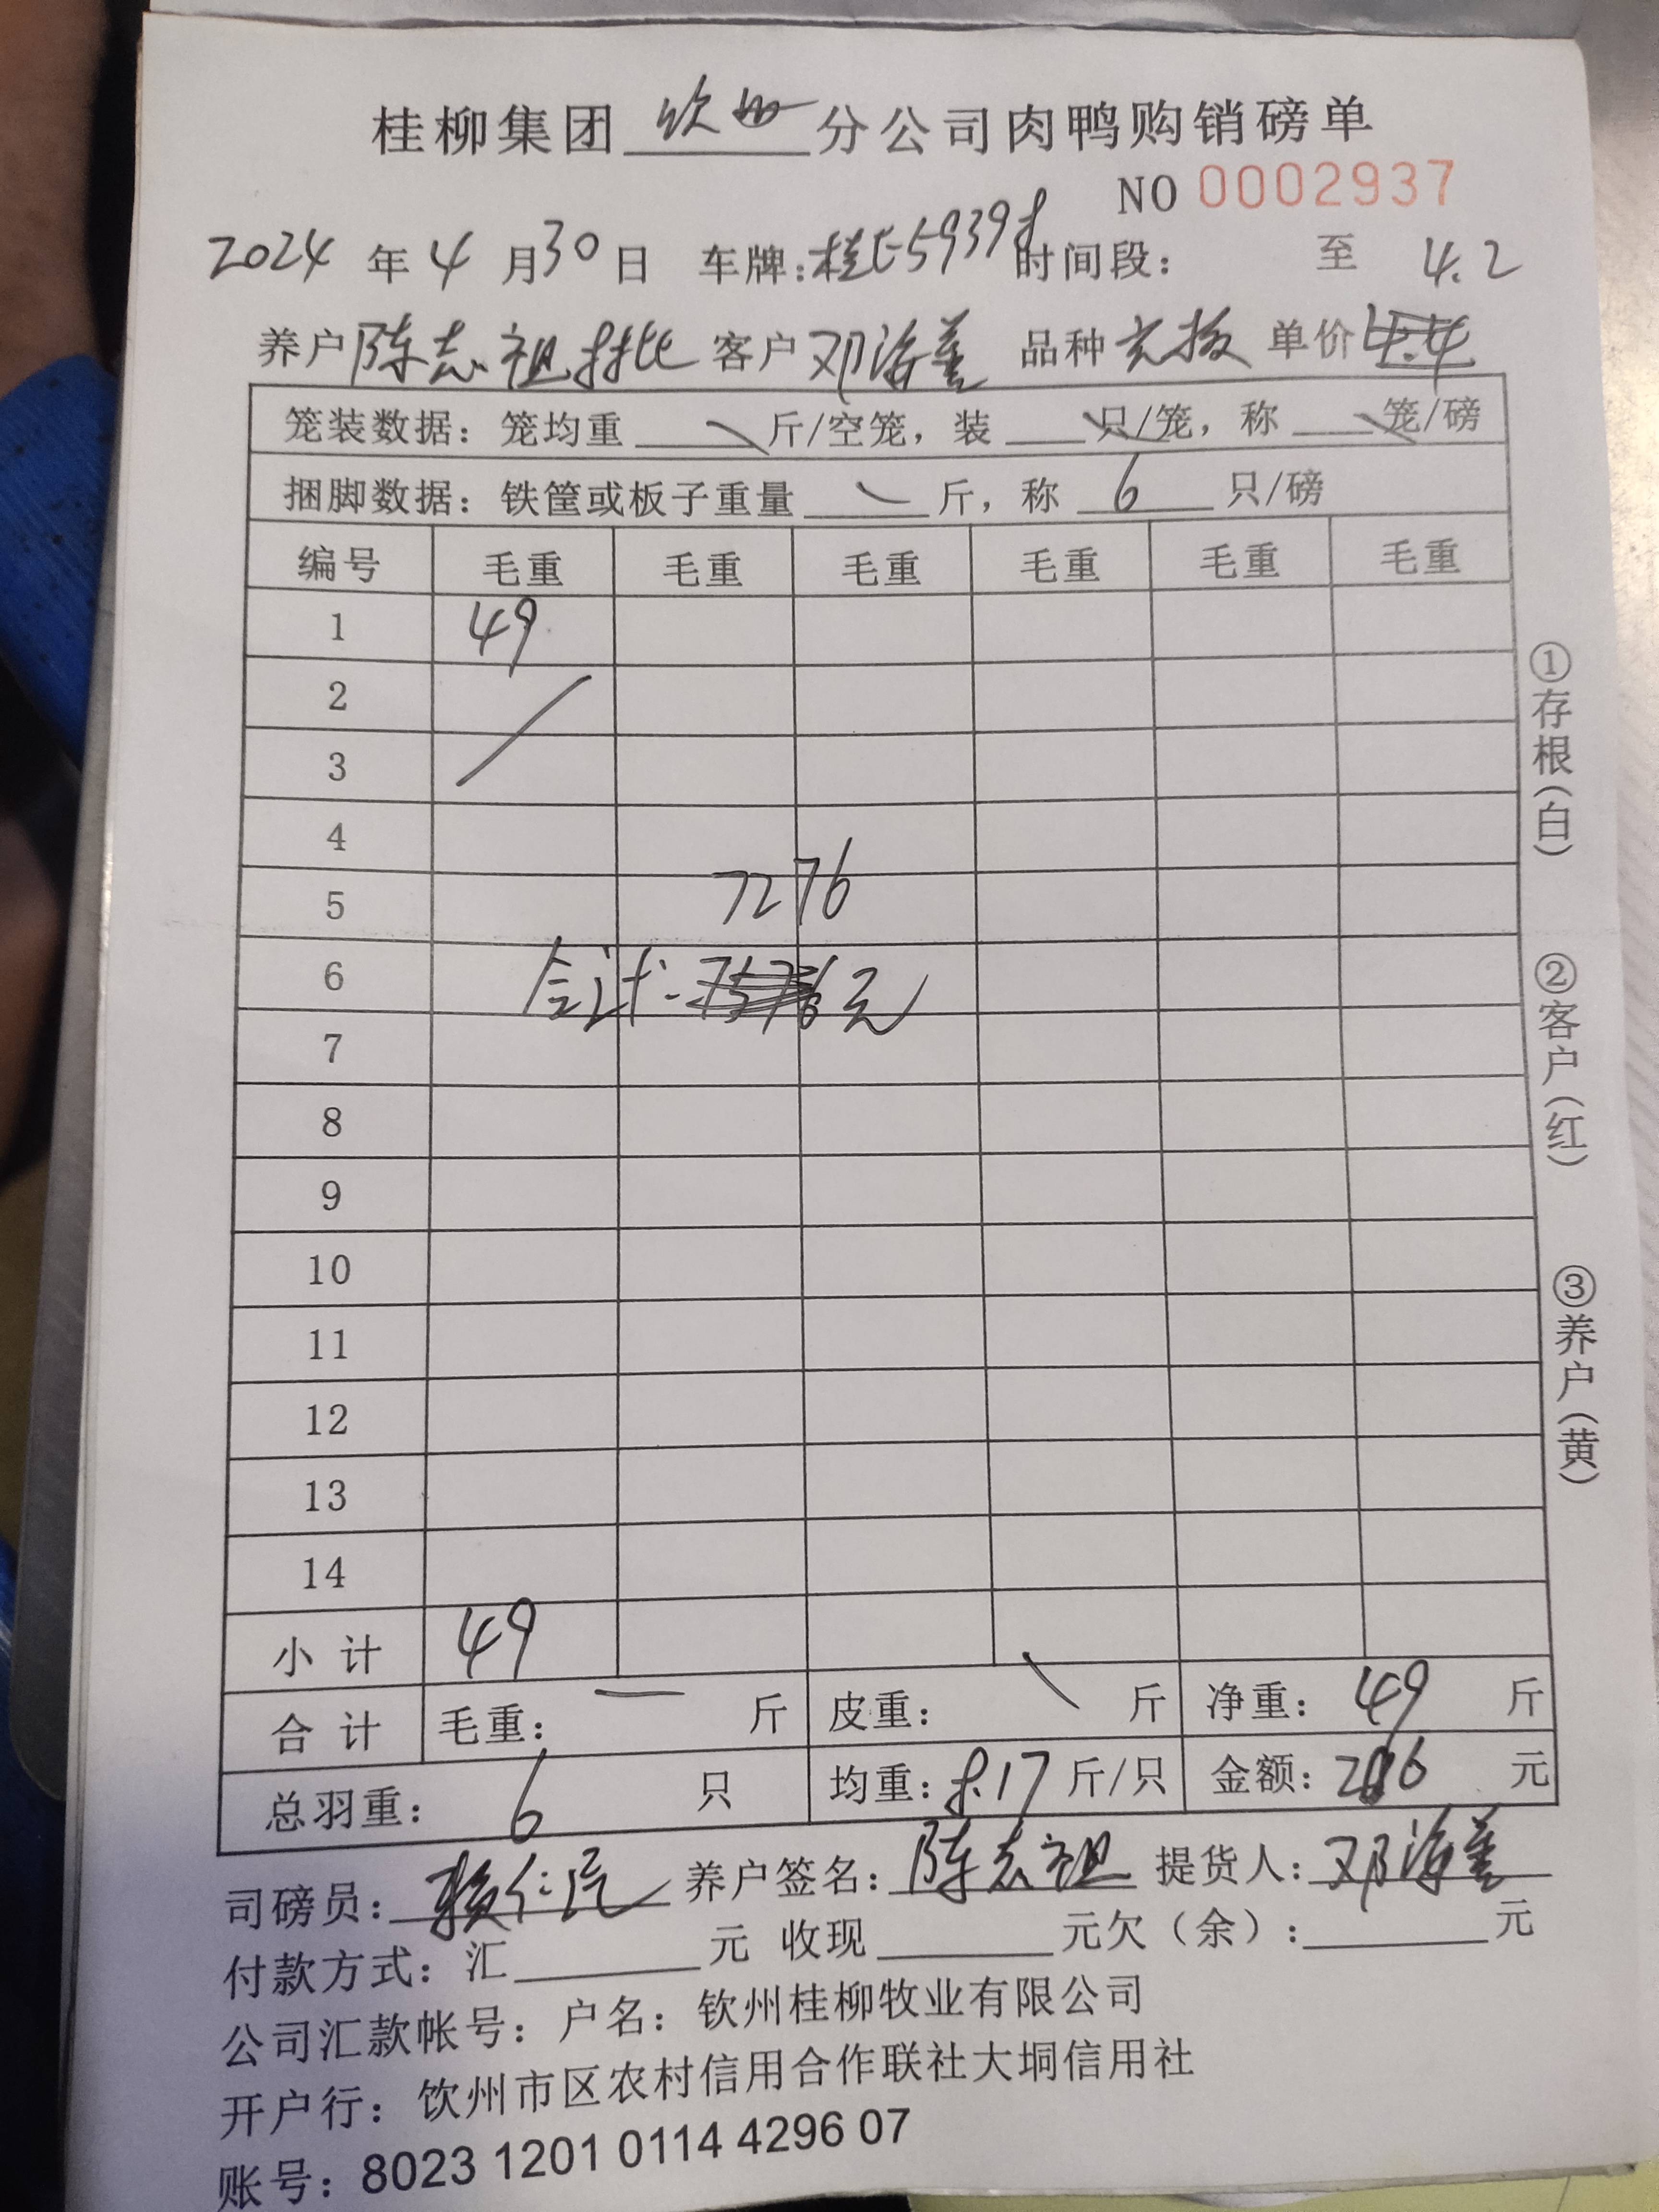 桂柳集团 钦州 分公司肉鸭购销磅单
NO 0002937
2024 年 4 月 30 日 车牌: 时间段: 至 4.2
养户 陈志祖 批 客户 邓海善 品种 单价
笼装数据: 笼均重 斤/空笼, 装 只/笼, 称 笼/磅
捆脚数据: 铁筐或板子重量 斤, 称 6 只/磅
编号 毛重 毛重 毛重 毛重 毛重 毛重
1 49
2
3
4
5 7276
6 合计: 元
7
8
9
10
11
12
13
14
小计 49
合计 毛重: 斤 皮重: 斤 净重: 49 斤
总羽重: 6 只 均重: 8.17 斤/只 金额: 206 元
司磅员: 养户签名: 陈志祖 提货人: 邓海善
付款方式: 汇 元 收现 元欠(余): 元
公司汇款帐号: 户名: 钦州桂柳牧业有限公司
开户行: 钦州市区农村信用合作联社大垌信用社
账号: 8023 1201 0114 4296 07
①存根(白)
②客户(红)
③养户(黄)